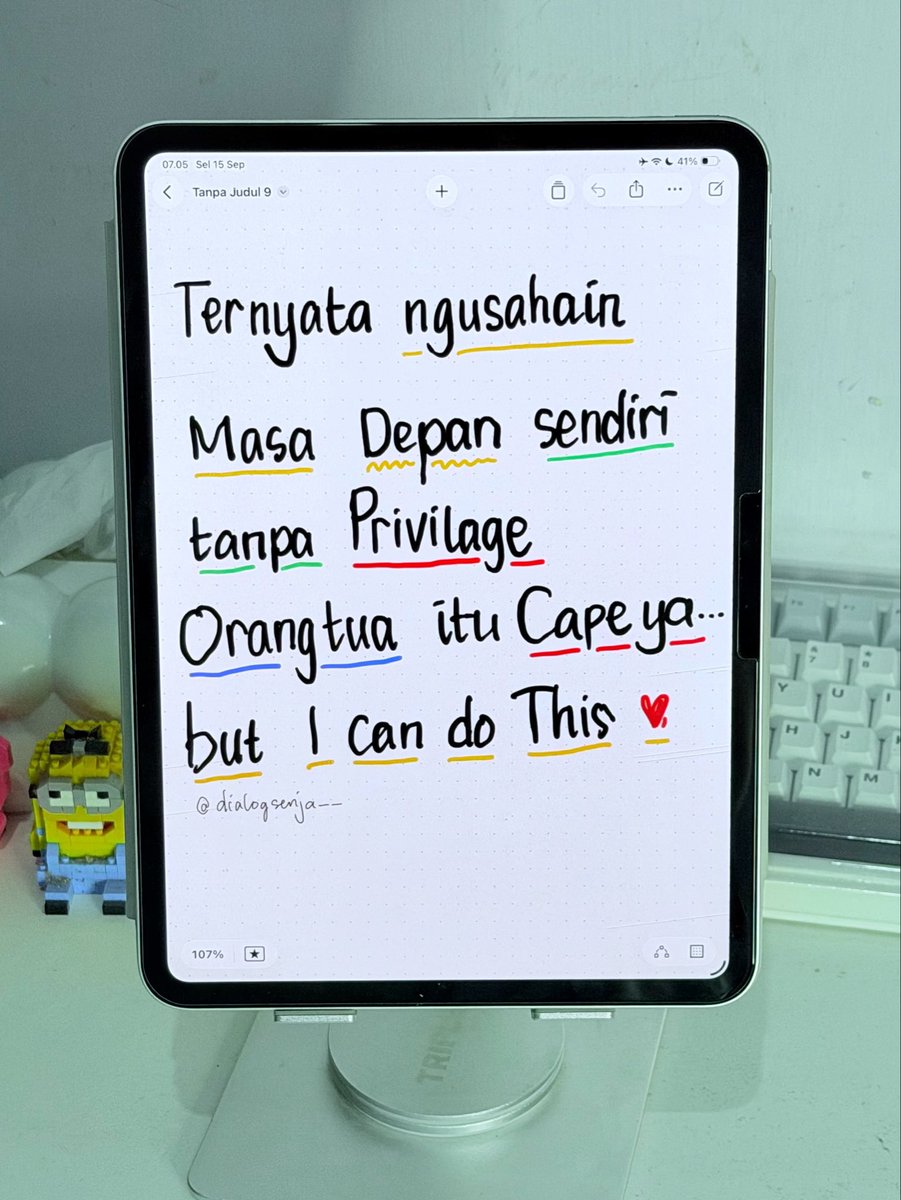 07.05 Sel 15 Sep 41%
Tanpa Judul 9
Ternyata ngusahain
Masa Depan sendiri
tanpa Privilage
Orangtua itu Cape ya...
but I can do This
@dialogsenja__
107%
&7
*8
Y U I
H J K
N M